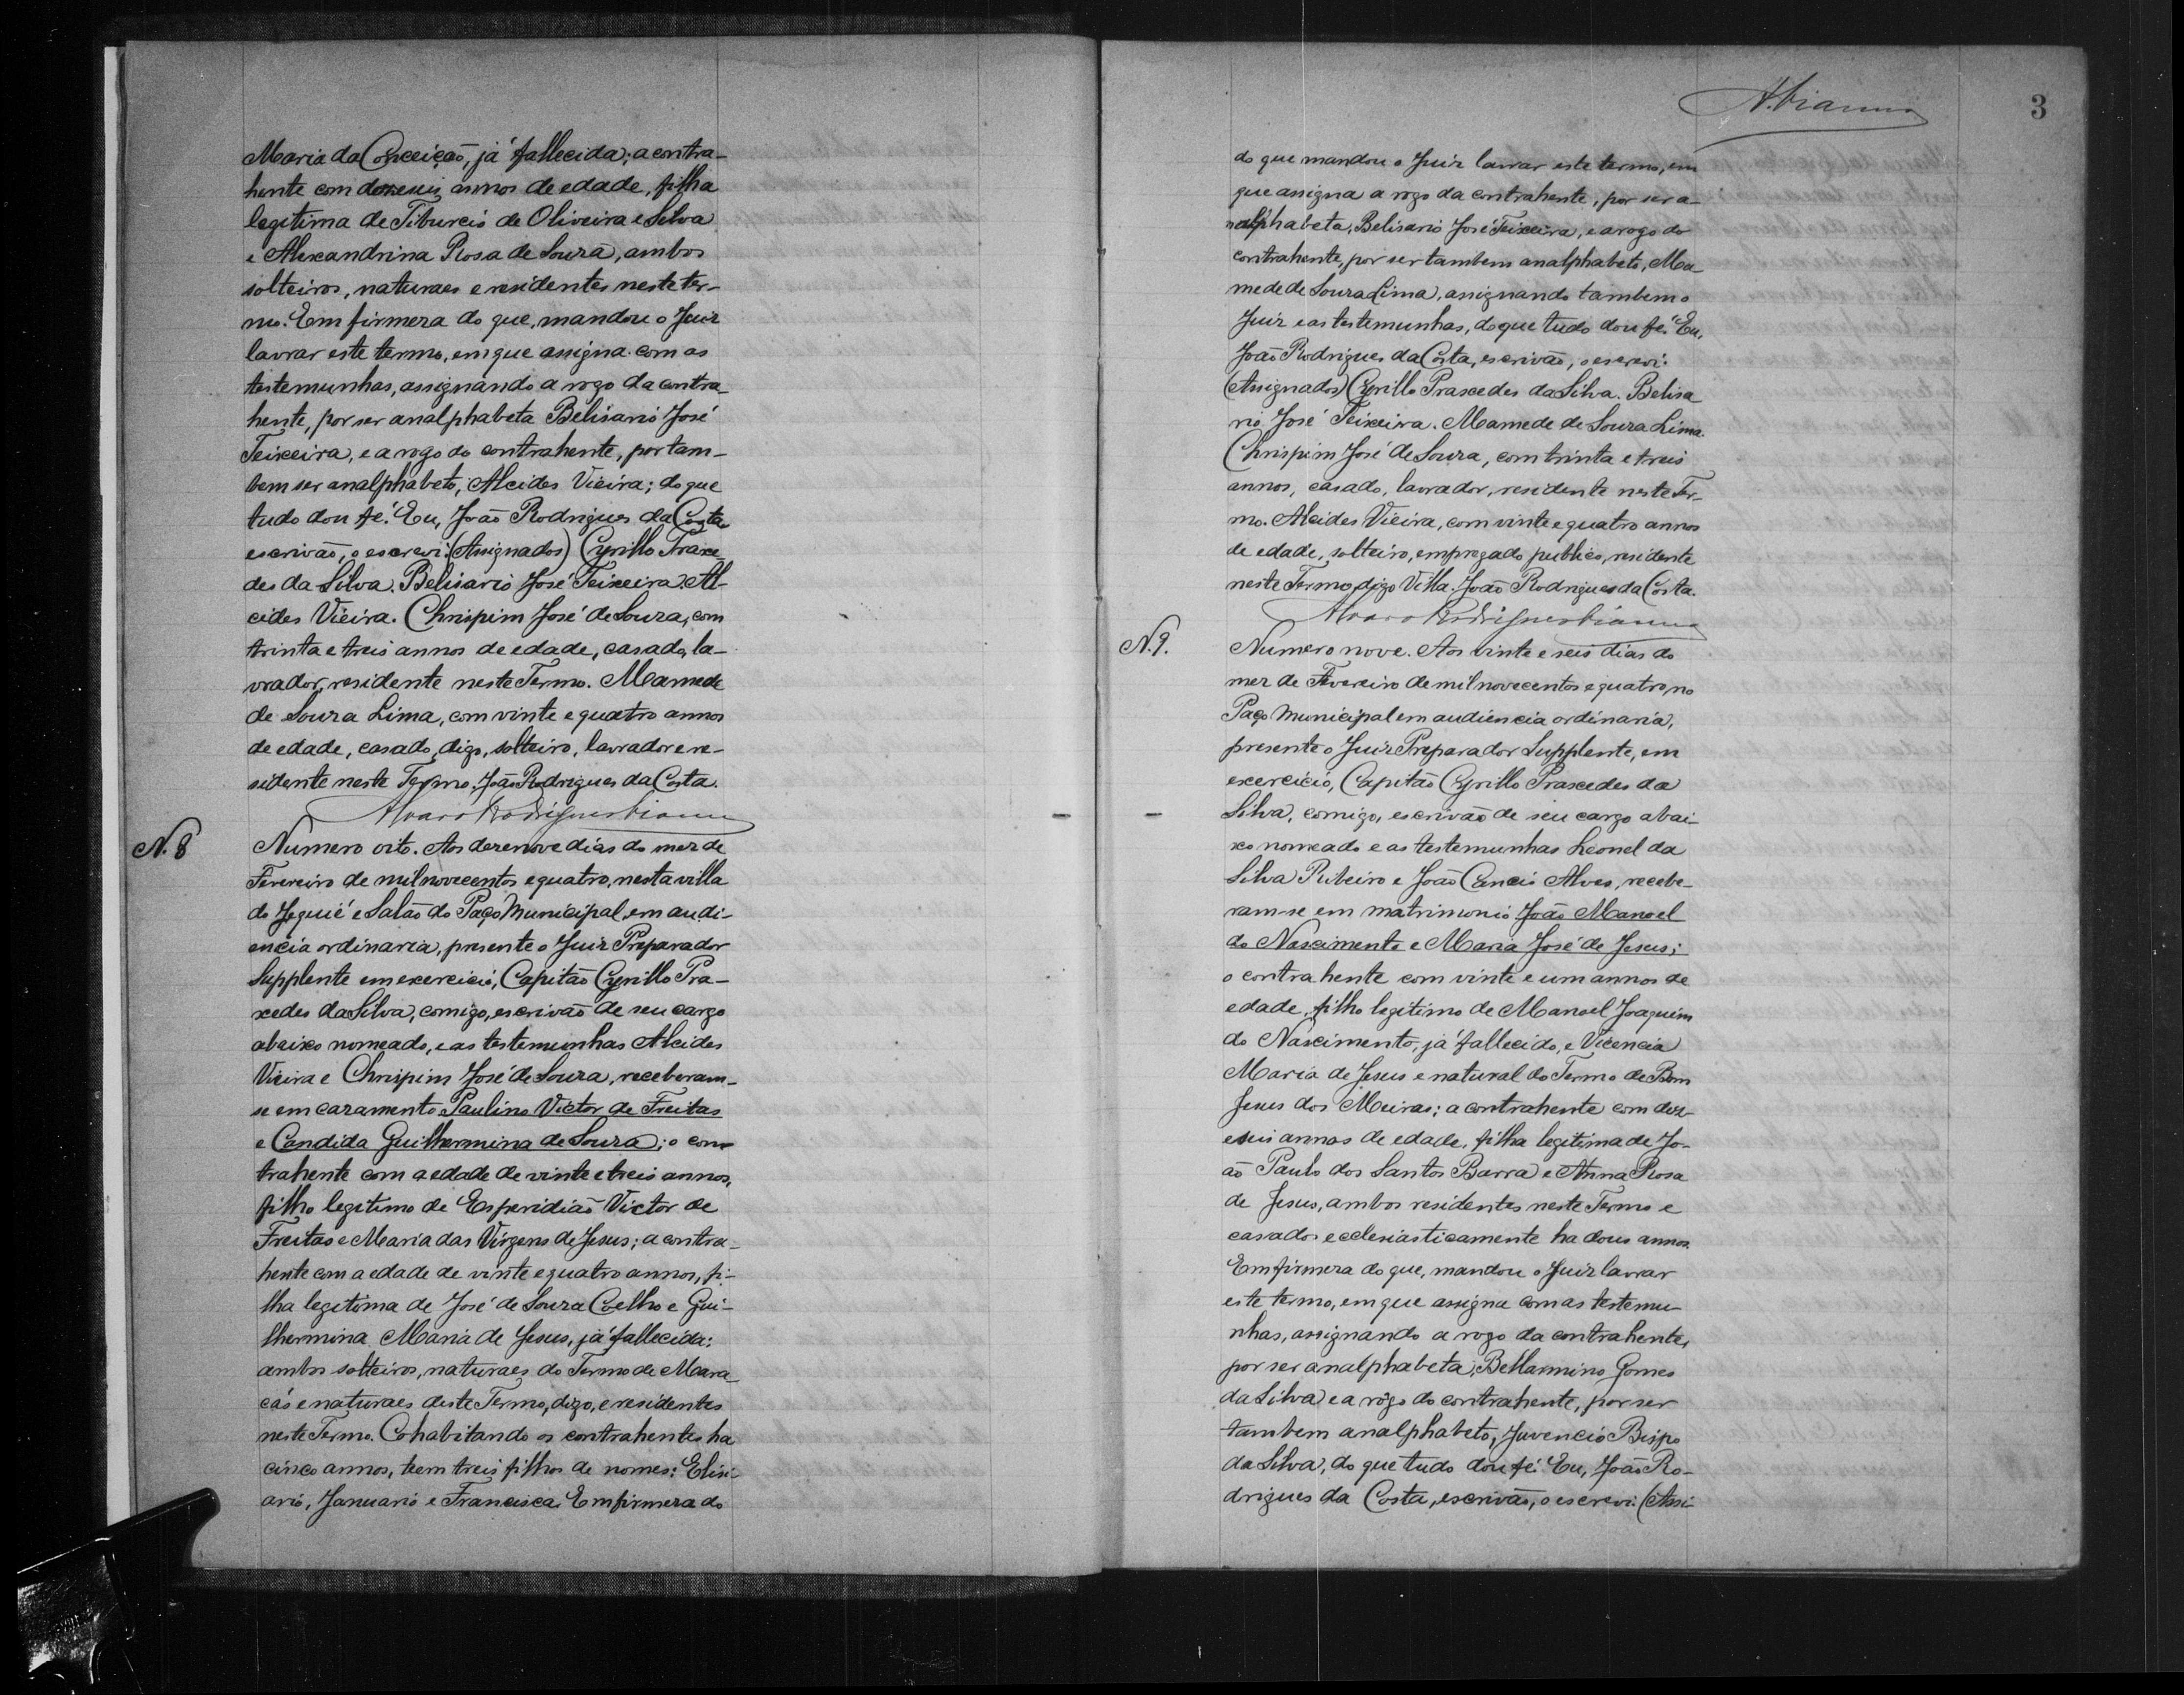 Maria da Conceição, já fallecida; a contra-
hente com dezeseis annos de edade, filha
legitima de Tiburcio de Oliveira e Silva
e Alexandrina Rosa de Souza, ambos
solteiros, naturaes e residentes neste ter-
mo. Em firmeza do que, mandou o Juiz
lavrar este termo, em que assigna com as
testemunhas, assignando a rogo da contra-
hente, por ser analphabeta Belisario José
Teixeira, e a rogo do contrahente, por tam-
bem ser analphabeto, Alcides Vieira; do que
tudo dou fé. Eu, João Rodrigues da Costa
escrivão, o escrevi. (Assignados) Cyrillo Praxe-
des da Silva. Belisario José Teixeira. Al-
cides Vieira. Chrispim José de Souza, com
trinta e treis annos de edade, casado, la-
vrador, residente neste Termo. Mamede
de Souza Lima, com vinte e quatro annos
de edade, casado, digo, solteiro, lavrador e re-
sidente neste Termo. João Rodrigues da Costa.
Alvaro Rodrigues Vianna
N. 8
Numero oito. Aos dezenove dias do mez de
Fevereiro de mil novecentos e quatro, nesta villa
do Jequié e Salão do Paço Municipal, em audi-
encia ordinaria, presente o Juiz Preparador
Supplente em exercicio, Capitão Cyrillo Pra-
xedes da Silva, comigo, escrivão de seu cargo
abaixo nomeado, e as testemunhas Alcides
Vieira e Chrispim José de Souza, receberam-
se em cazamento Paulino Victor de Freitas
e Candida Guilhermina de Souza; o con-
trahente com a edade de vinte e treis annos,
filho legitimo de Esperidião Victor de
Freitas e Maria das Virgens de Jesus; a contra-
hente com a edade de vinte e quatro annos, fi-
lha legitima de José de Souza Coelho e Gui-
lhermina Maria de Jesus, já fallecida;
ambos solteiros, naturaes do Termo de Mara-
cás e naturaes deste Termo, digo, e residentes
neste Termo. Cohabitando os contrahentes ha
cinco annos, teem treis filhos de nomes: Elisi-
ario, Januario e Francisca. Em firmeza do
A. Vianna
3
do que mandou o Juiz lavrar este termo, em
que assigna a rogo da contrahente, por ser a-
nalphabeta, Belisario José Teixeira, e a rogo do
contrahente, por ser tambem analphabeto, Ma-
mede de Souza Lima, assignando tambem o
Juiz e as testemunhas, do que tudo dou fé. Eu,
João Rodrigues da Costa, escrivão, o escrevi.
(Assignados) Cyrillo Praxedes da Silva. Belisa
rio José Teixeira. Mamede de Souza Lima.
Chrispim José de Souza, com trinta e treis
annos, casado, lavrador, residente neste Ter-
mo. Alcides Vieira, com vinte e quatro annos
de edade, solteiro, empregado publico, residente
neste Termo, digo Villa. João Rodrigues da Costa.
Alvaro Rodrigues Vianna
N. 9.
Numero nove. Aos vinte e seis dias do
mez de Fevereiro de mil novecentos e quatro, no
Paço Municipal em audiencia ordinaria,
presente o Juiz Preparador Supplente, em
exercicio, Capitão Cyrillo Praxedes da
Silva, comigo, escrivão de seu cargo abai-
xo nomeado e as testemunhas Leonel da
Silva Ribeiro e João Cancio Alves, recebe-
ram-se em matrimonio João Manoel
do Nascimento e Maria José de Jesus;
o contrahente com vinte e um annos de
edade, filho legitimo de Manoel Joaquim
do Nascimento, já fallecido, e Vicencia
Maria de Jesus e natural do Termo de Bom
Jesus dos Meiras; a contrahente com dez-
eseis annos de edade, filha legitima de Jo-
ão Paulo dos Santos Barra e Anna Rosa
de Jesus, ambos residentes neste Termo e
casados ecclesiasticamente ha dous annos.
Em firmeza do que, mandou o Juiz lavrar
este termo, em que assigna com as testemu-
nhas, assignando a rogo da contrahente,
por ser analphabeta, Bellarmino Gomes
da Silva e a rogo do contrahente, por ser
tambem analphabeto, Juvencio Bispo
da Silva, do que tudo dou fé. Eu, João Ro-
drigues da Costa, escrivão, o escrevi. (Assi-